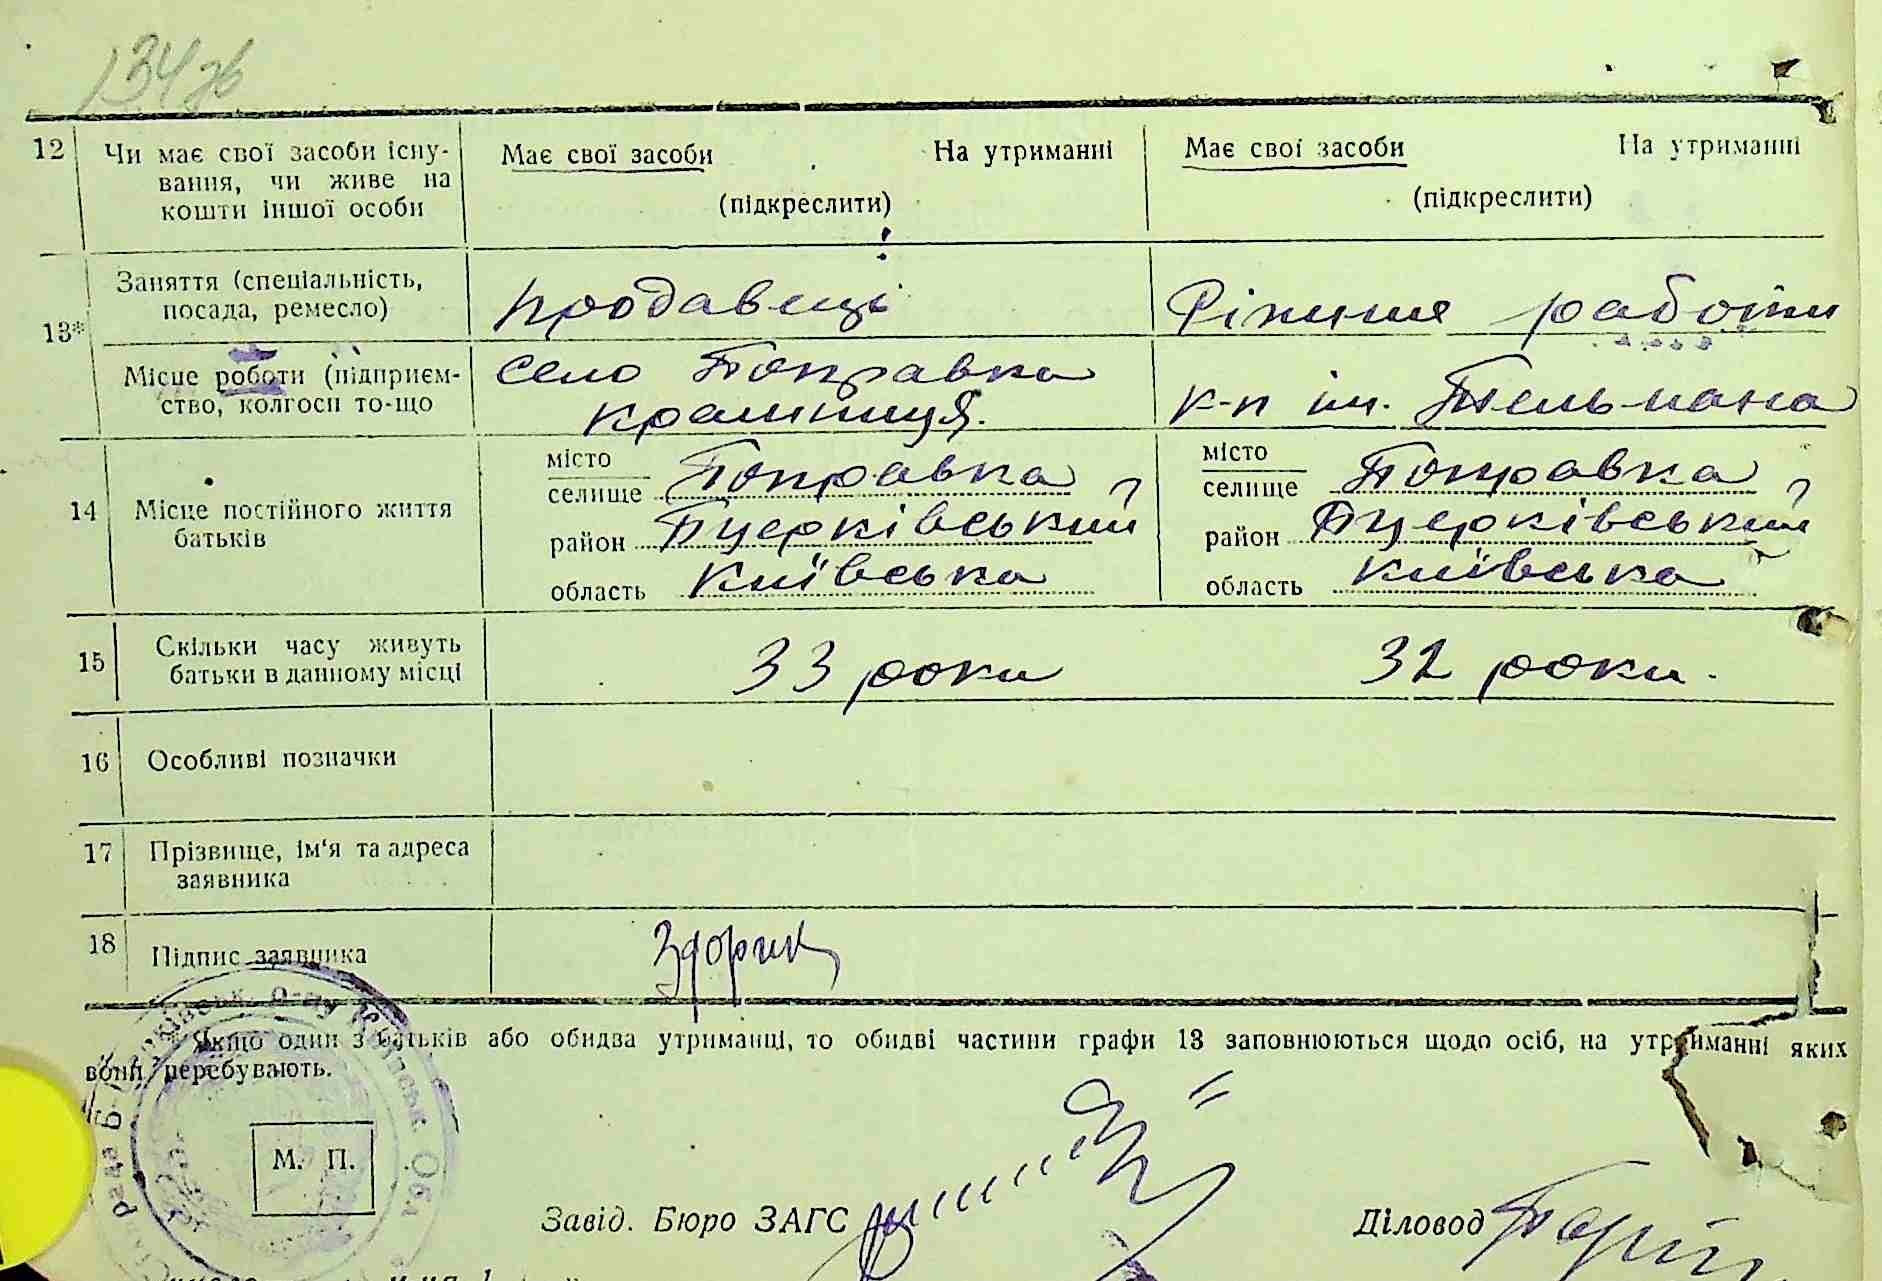 134 зв
12 Чи має свої засоби існу-
вання, чи живе на
кошти іншої особи
Має свої засоби На утриманні
(підкреслити)
Має свої засоби На утриманні
(підкреслити)
13*
Заняття (спеціальність,
посада, ремесло)
продавець
Ріжниє работи
Місце роботи (підприєм-
ство, колгосп то-що
село Поправка
крамниця.
к-п ім. Тельмана
14 Місце постійного життя
батьків
місто
селище Поправка
район Бцерківський
область Київська
місто
селище Поправка
район Бцерківський
область Київська
15 Скільки часу живуть
батьки в данному місці
33 роки
32 роки.
16 Особливі позначки
17 Прізвище, ім'я та адреса
заявника
18 Підпис заявника
Якщо один з батьків або обидва утриманці, то обидві частини графи 13 заповнюються щодо осіб, на утриманні яких
вони перебувають.
рада Б-Церківськ. р-ну Київськ. Обл
М. П.
Завід. Бюро ЗАГС
Діловод